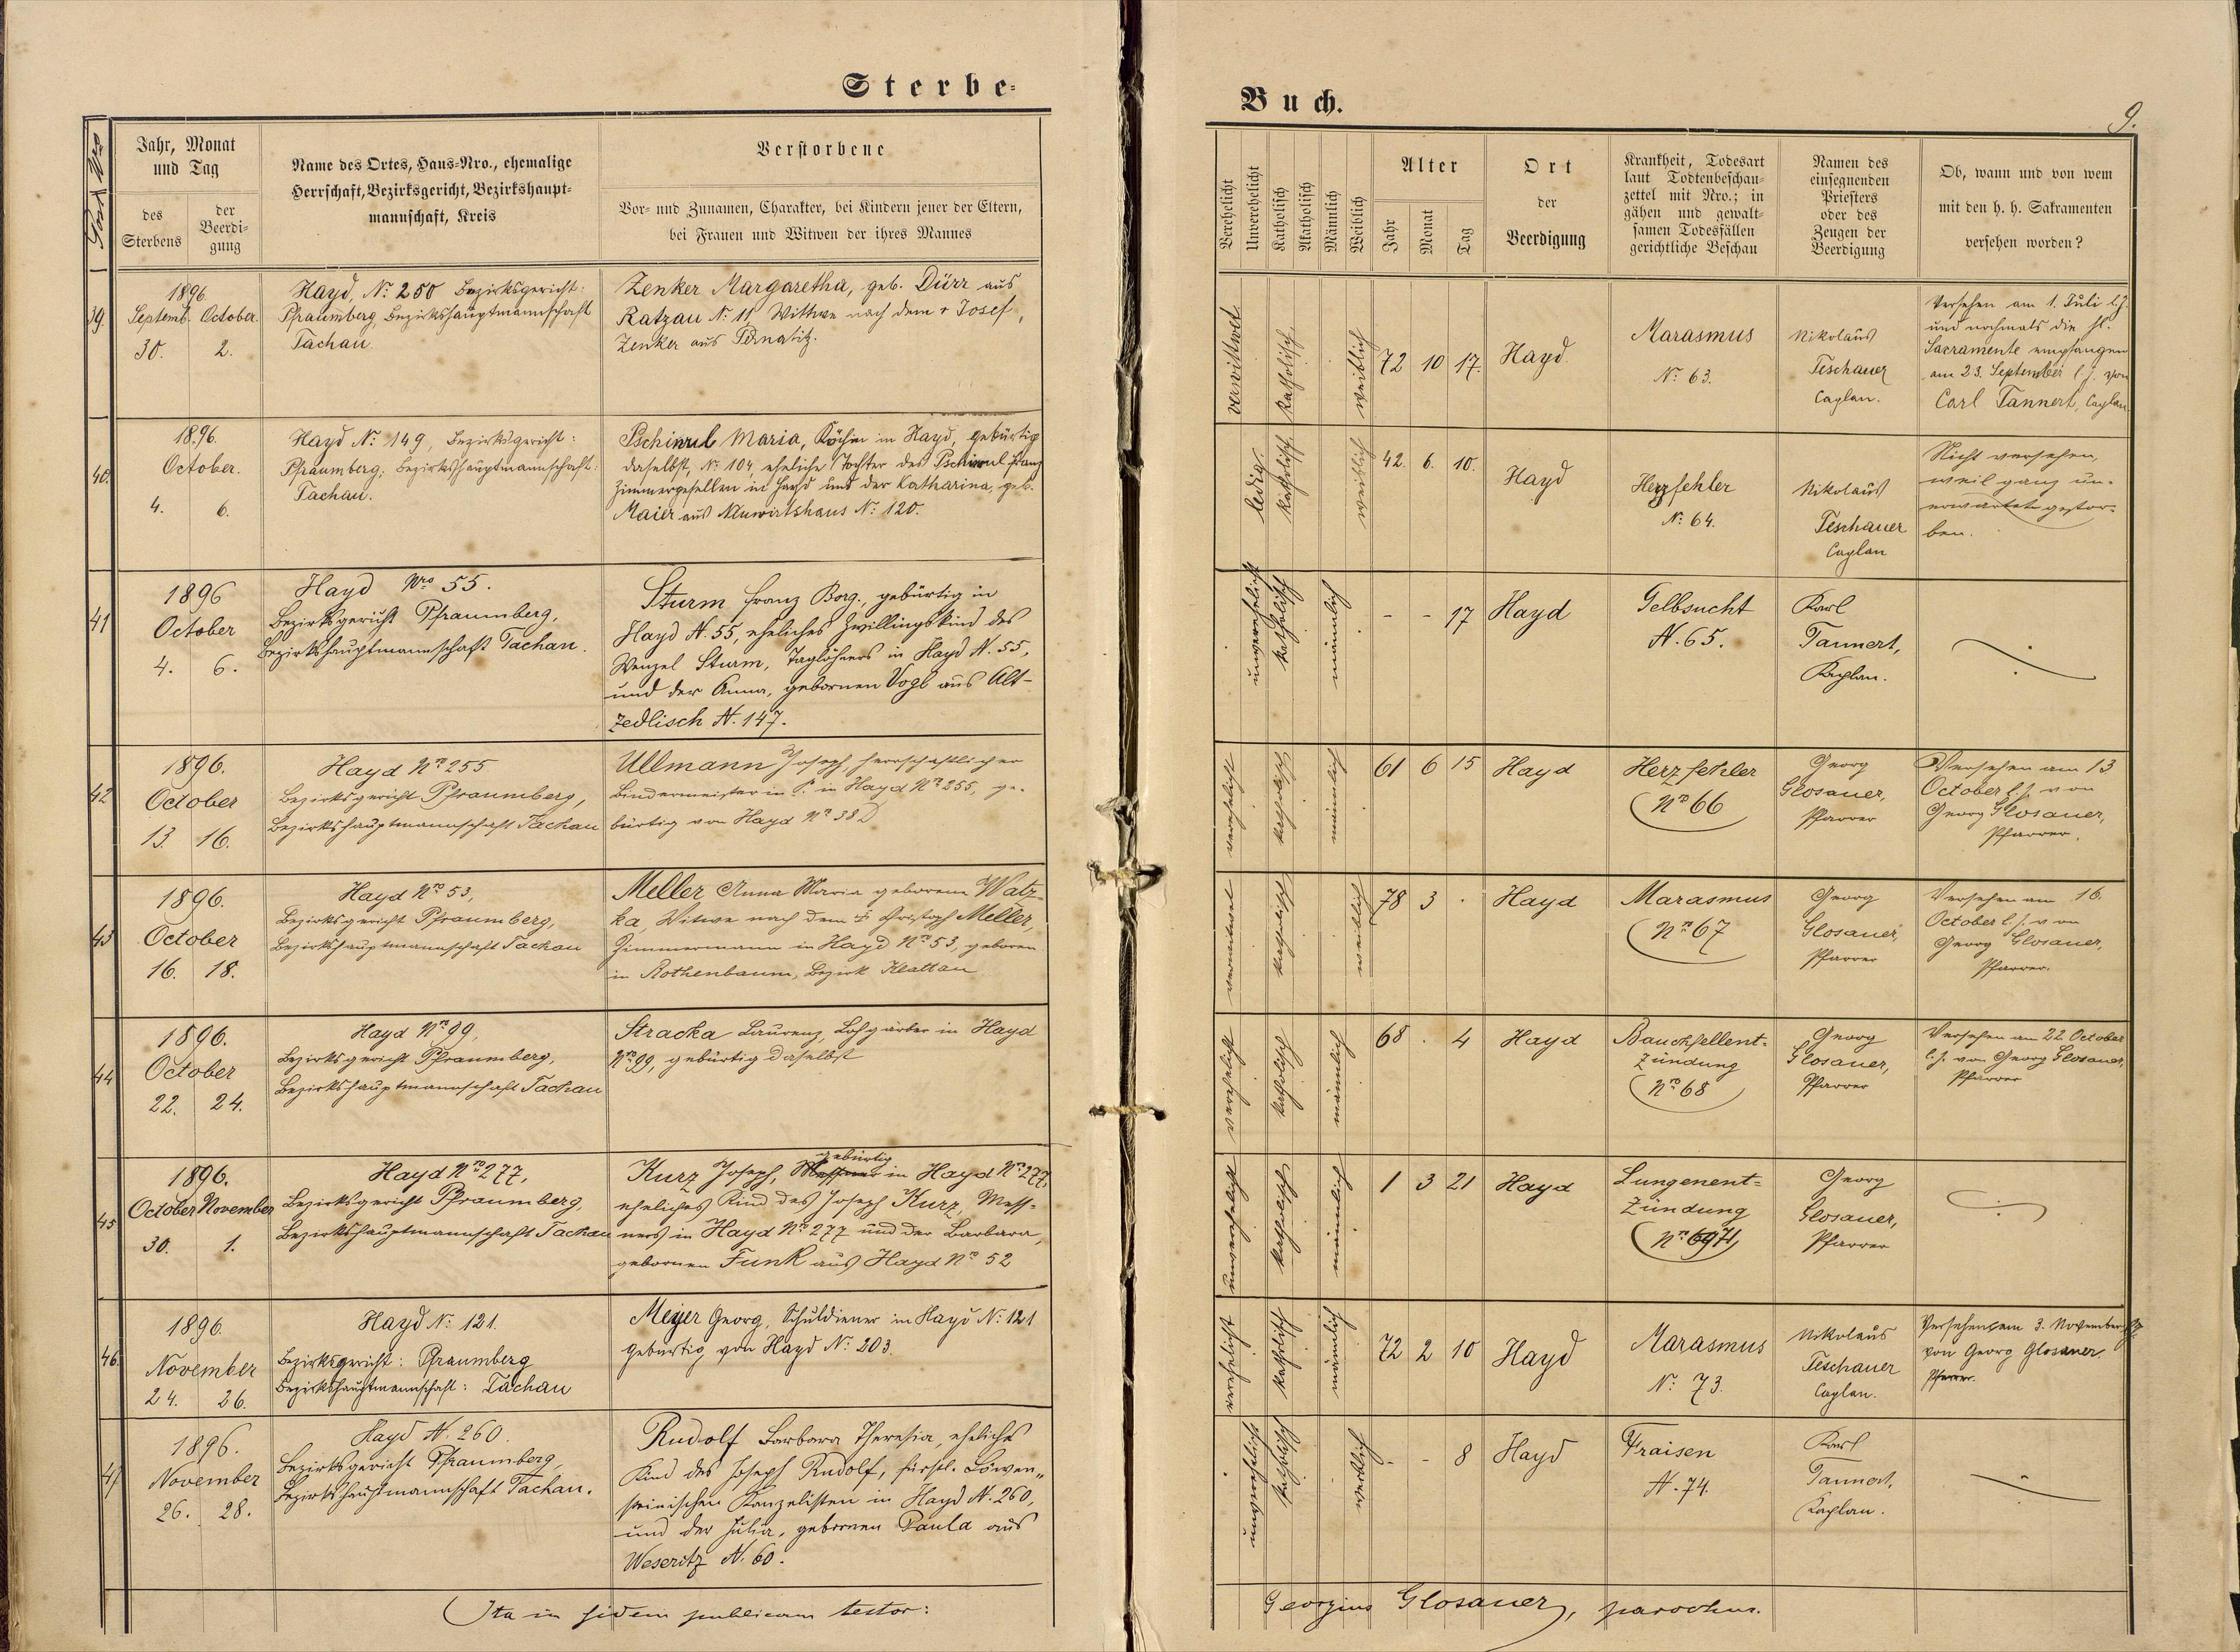 Sterbe-
Post Nro
Jahr, Monat
und Tag
des
Sterbens
der
Beerdi-
gung
Name des Ortes, Haus-Nro., ehemalige
Herrschaft, Bezirksgericht, Bezirkshaupt-
mannschaft, Kreis
Verstorbene
Vor- und Zunamen, Charakter, bei Kindern jener der Eltern,
bei Frauen und Witwen der ihres Mannes
39.
1896.
Septemb. October.
30. 2.
Hayd, No. 250 Bezirksgericht:
Pfraumberg, Bezirkshauptmannschaft
Tachau.
Zenker Margaretha, geb. Dürr aus
Ratzau No. 11, Wittwe nach dem + Josef
Zenker aus Pernatitz.
40.
1896.
October.
4. 6.
Hayd No. 149, Bezirksgericht:
Pfraumberg; Bezirkshauptmannschaft:
Tachau.
Maria, Köchin in Hayd, gebürtig
daselbst, No. 104, eheliche Tochter des Franz
Zimmergesellen in Hayd und der Katharina, geb.
Maier aus Neuwirtshaus No. 120.
41
1896
October
4. 6.
Hayd Nro 55.
Bezirksgericht Pfraumberg,
Bezirkshauptmannschaft Tachau.
Sturm Franz Borg., gebürtig in
Hayd N. 55, eheliches Zwillingskind des
Wenzel Sturm, Taglöhners in Hayd N. 55,
und der Anna, gebornen Vogl aus Alt-
zedlisch N. 147.
42
1896.
October
13. 16.
Hayd Nro 255
Bezirksgericht Pfraumberg,
Bezirkshauptmannschaft Tachau
Ullmann Joseph, herrschaftlicher
Bindermeister in P. in Hayd Nro 255, ge-
bürtig von Hayd Nro 38
43
1896.
October
16. 18.
Hayd Nro 53,
Bezirksgericht Pfraumberg,
Bezirkshauptmannschaft Tachau
Meller Anna Maria geborene Watz-
ka, Witwe nach dem + Christoph Meller,
Zimmermann in Hayd Nro 53, geboren
in Rothenbaum, Bezirk Klattau
44
1896.
October
22. 24.
Hayd Nro 99,
Bezirksgericht Pfraumberg,
Bezirkshauptmannschaft Tachau
Stracka Laurenz, Lohgärber in Hayd
Nro 99, gebürtig daselbst
45
1896.
October November
30. 1.
Hayd Nro 277,
Bezirksgericht Pfraumberg,
Bezirkshauptmannschaft Tachau
gebürtig
Kurz Joseph, Messner in Hayd Nro 277,
eheliches Kind des Joseph Kurz, Mess-
ners in Hayd Nro 277 und der Barbara,
gebornen Funk aus Hayd Nro 52
46.
1896.
November
24. 26.
Hayd No. 121.
Bezirksgericht: Pfraumberg
Bezirkshauptmannschaft: Tachau
Meyer Georg, Schuldiener in Hayd No. 121
gebürtig von Hayd No. 203.
47
1896.
November
26. 28.
Hayd N. 260.
Bezirksgericht Pfraumberg,
Bezirkshauptmannschaft Tachau.
Rudolf Barbara Theresia, eheliches
Kind des Joseph Rudolf, fürstl. Löwen-
steinischen Kanzelisten in Hayd N. 260,
und der Julia, gebornen Paula aus
Weseritz N. 60.
Ita in fidem publicam testor:
Buch.
9.
Verehelicht
Unverehelicht
Katholisch
Akatholisch
Männlich
Weiblich
Alter
Jahr
Monat
Tag
Ort
der
Beerdigung
Krankheit, Todesart
laut Todtenbeschau-
zettel mit Nro.; in
gähen und gewalt-
samen Todesfällen
gerichtliche Beschau
Namen des
einsegnenden
Priesters
oder des
Zeugen der
Beerdigung
Ob, wann und von wem
mit den h. h. Sakramenten
versehen worden?
verwittwet
katholisch.
weiblich
72 10 17.
Hayd.
Marasmus
No. 63.
Nikolaus
Teschauer
Caplan.
Versehen am 1. Juli l. J.
und nochmals die hl.
Sacramente empfangen
am 23. September l. J. von
Carl Tannert, Caplan.
ledig.
katholisch.
weiblich
42. 6. 10.
Hayd
Herzfehler
No. 64.
Nikolaus
Teschauer
Caplan
Nicht versehen,
weil ganz un-
erwartet gestor-
ben.
unverehelicht
katholisch
männlich
- - 17
Hayd
Gelbsucht
N. 65.
Karl
Tannert,
Kaplan.
verehelicht
katholisch
männlich
61 6 15
Hayd
Herzfehler
Nro 66
Georg
Glosauer,
Pfarrer
Versehen am 13
October l. J. von
Georg Glosauer,
Pfarrer.
verwitwet
katholisch
weiblich
78 3 .
Hayd
Marasmus
Nro 67
Georg
Glosauer,
Pfarrer
Versehen am 16.
October l. J. von
Georg Glosauer,
Pfarrer.
verehelicht
katholisch
männlich
68 . 4
Hayd
Bauchfellent-
zündung
Nro 68
Georg
Glosauer,
Pfarrer
Versehen am 22. October
l. J. von Georg Glosauer,
Pfarrer
unverehelicht
katholisch
männlich
1 3 21
Hayd
Lungenent-
zündung
Nro 71
Georg
Glosauer,
Pfarrer
verehelicht
katholisch
männlich
72 2 10
Hayd
Marasmus
No. 73.
Nikolaus
Teschauer
Caplan.
Versehen am 3. November
von Georg Glosauer
Pfarrer.
unverehelicht
katholisch
weiblich
- - 8
Hayd
Fraisen
N. 74.
Karl
Tannert,
Kaplan.
Georgius Glosauer, parochus.